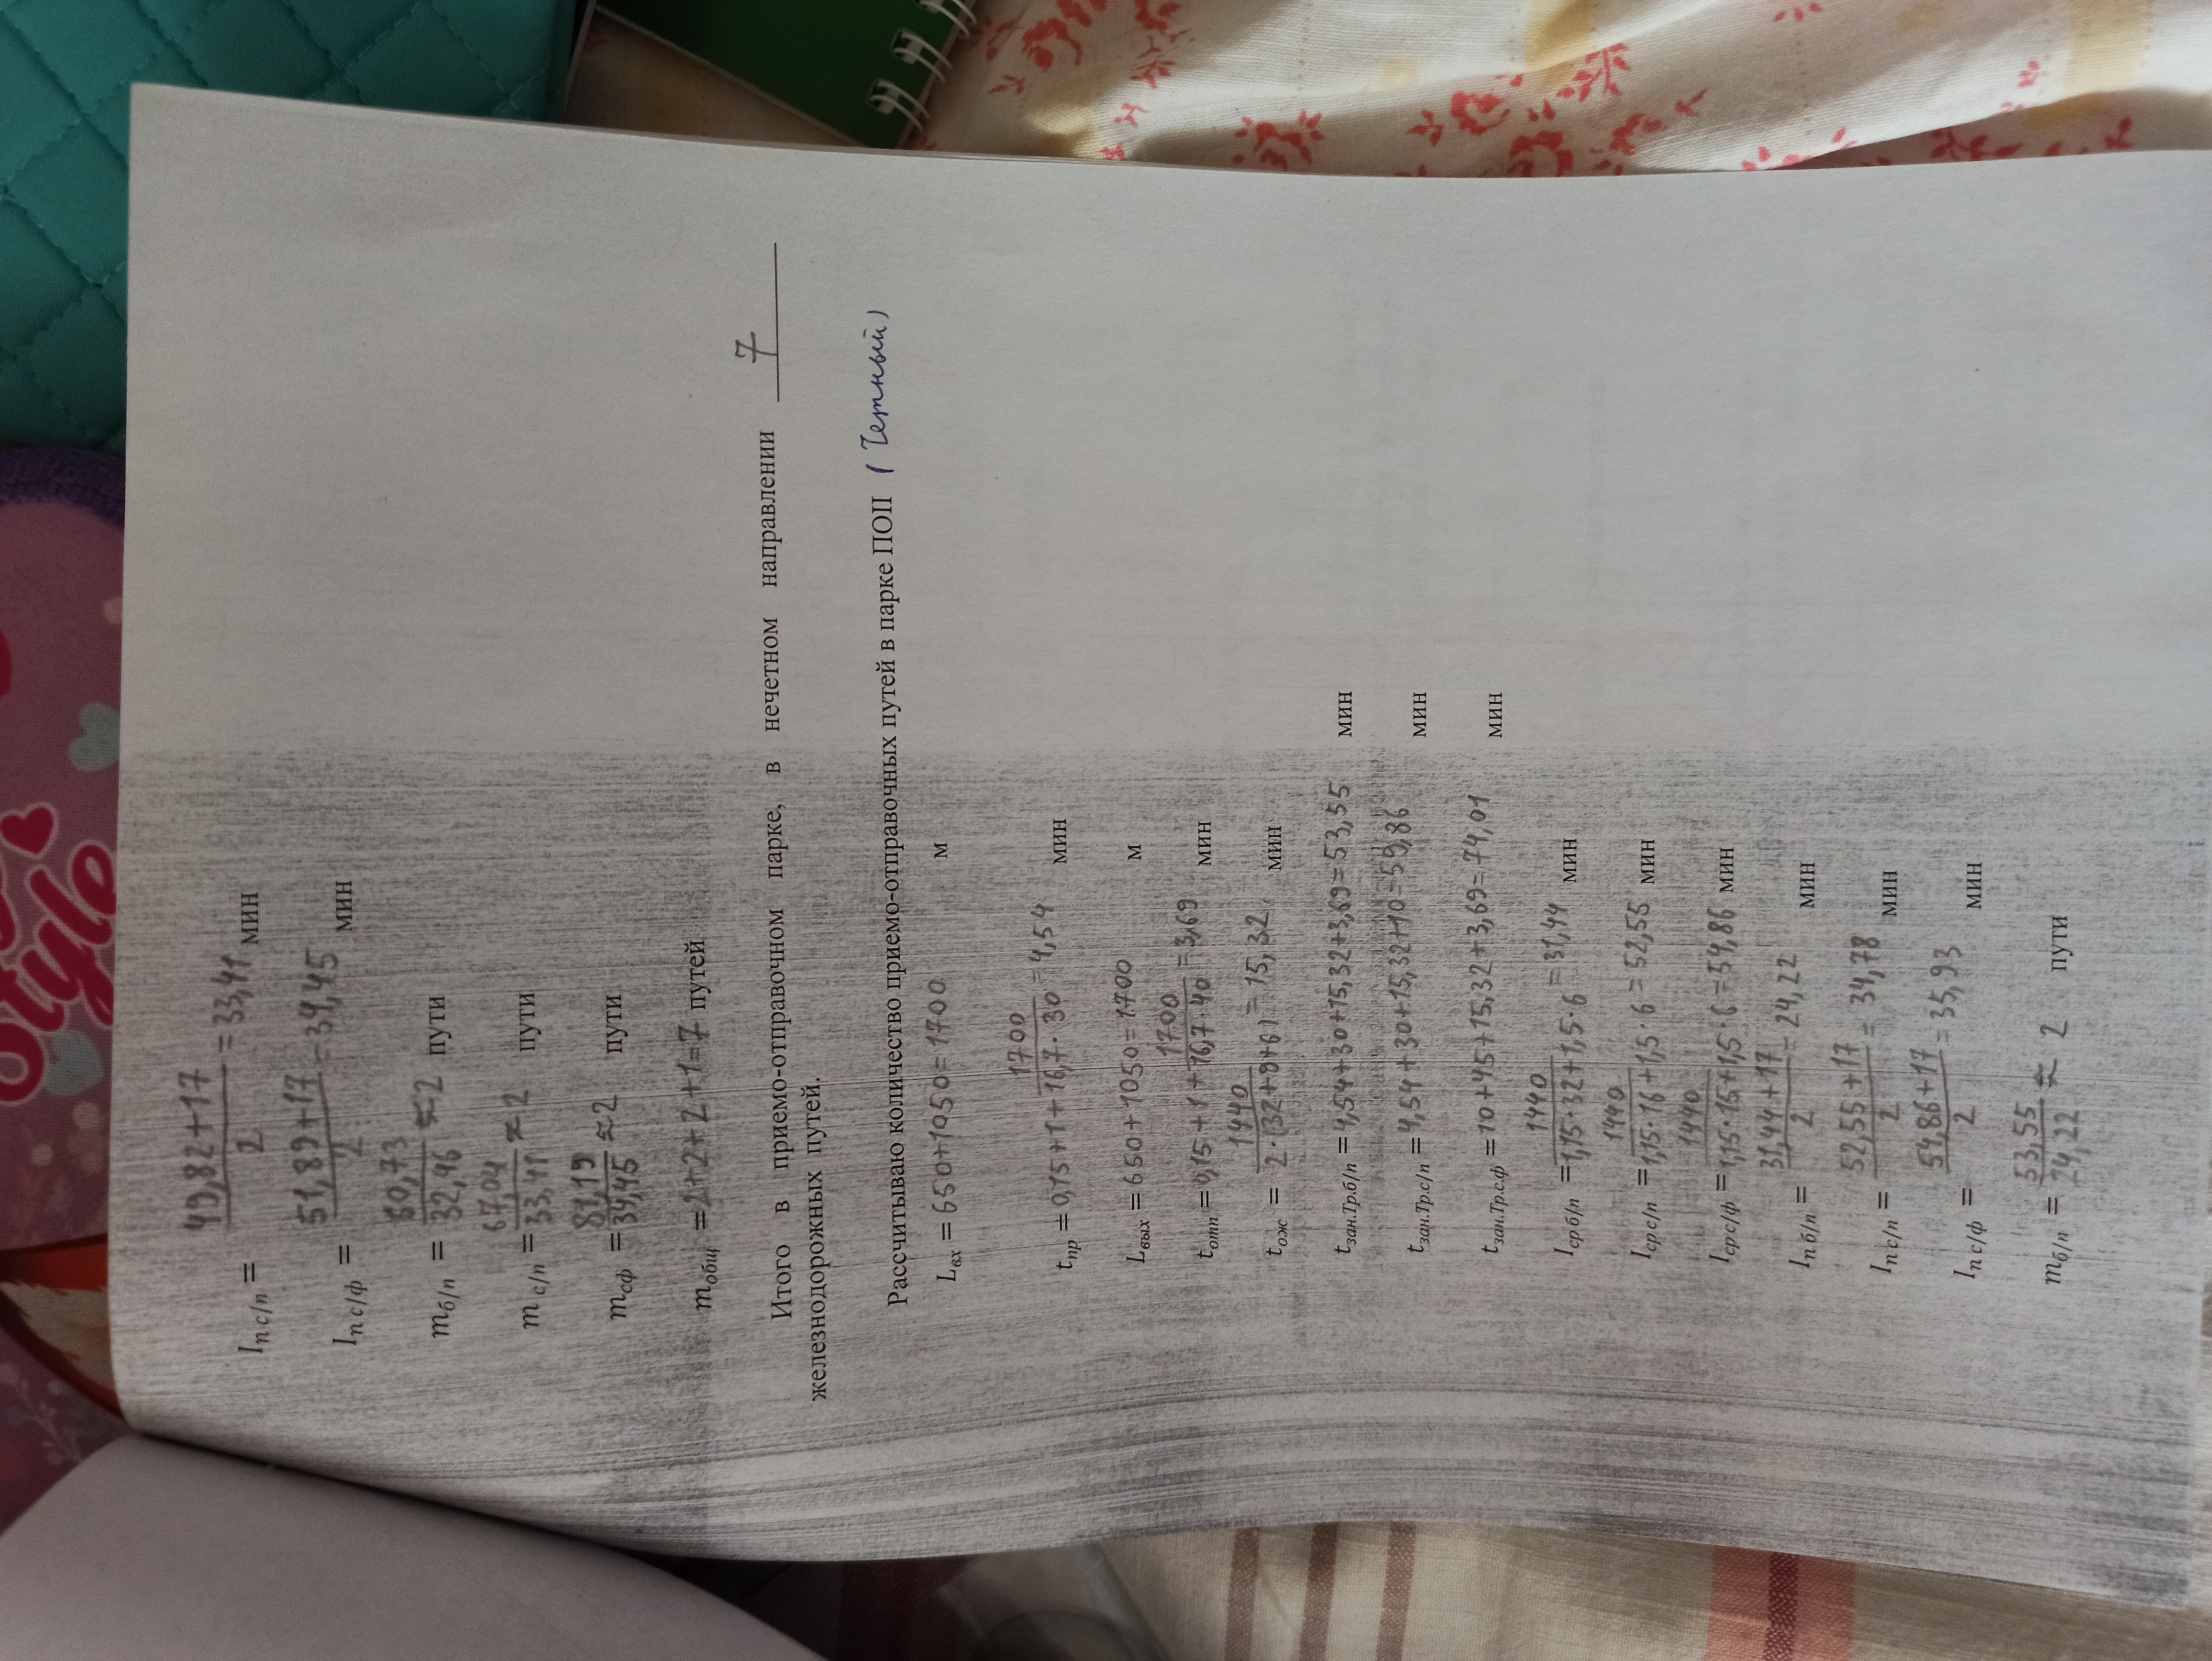 style
I п с/п = (49,82+17)/2 = 33,41 мин
I п с/ф = (51,89+17)/2 = 34,45 мин
m б/п = 60,73/32,46 ≈ 2 пути
m с/п = 67,04/33,41 ≈ 2 пути
m сф = 81,19/34,45 ≈ 2 пути
m общ = 2+2+2+1=7 путей
Итого в приемо-отправочном парке, в нечетном направлении 7
железнодорожных путей.
Рассчитываю количество приемо-отправочных путей в парке ПОП (Четный)
L вх = 650+1050=1700 м
t пр = 0,15+1+1700/(16,7·30) = 4,54 мин
L вых = 650+1050=1700 м
t отп = 0,15+1+1700/(16,7·40) = 3,69 мин
t ож = 1440/(2·(32+9+6)) = 15,32 мин
t зан.Тр.б/п = 4,54+30+15,32+3,69=53,55 мин
t зан.Тр.с/п = 4,54+30+15,32+10=59,86 мин
t зан.Тр.с.ф = 10+45+15,32+3,69=74,01 мин
I ср б/п = 1440/(1,15·32+1,5·6) = 31,44 мин
I ср с/п = 1440/(1,15·16+1,5·6) = 52,55 мин
I ср с/ф = 1440/(1,15·15+1,5·6) = 54,86 мин
I п б/п = (31,44+17)/2 = 24,22 мин
I п с/п = (52,55+17)/2 = 34,78 мин
I п с/ф = (54,86+17)/2 = 35,93 мин
m б/п = 53,55/24,22 ≈ 2 пути